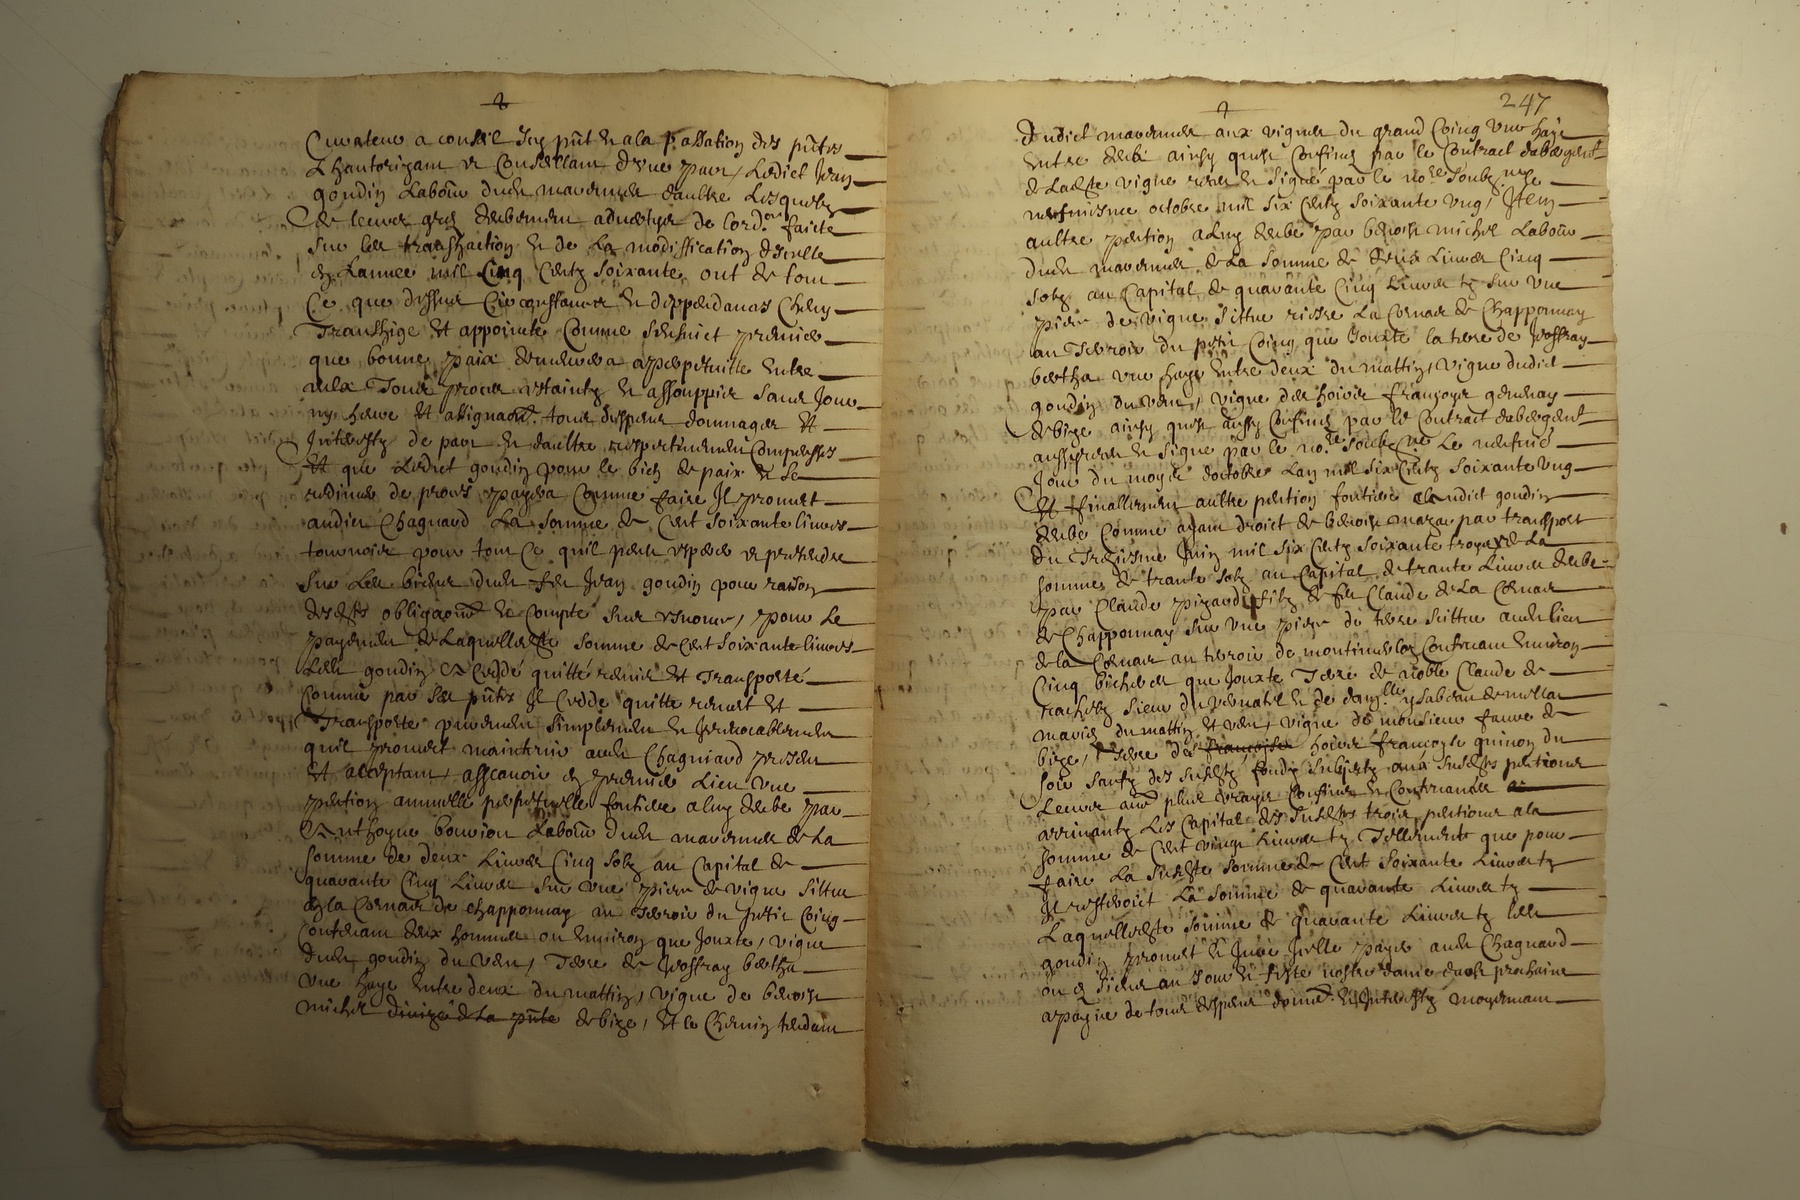 Curateur a conseil Icy pnt et a la passation des pntes
Lhauthorizant et Conseillant d'vne part, Ledict Jean
goudin Labour dudit daultre Lesquelz
de leurs grez deubement advertys de Lord.ce faicte
sur les transaction et de La modiffication dicelle
en Lannee mil Cinq Centz soixante, ont de tout
Ce que dessus Circonstances et deppendances Cheny
Transhigé et appoincté Comme sensuict premier
que bonne paix demeurera a perpetuitte entre
eulx Tous proces estaintz et assouppis sans Jour
ny heure et assignaon tous despens dommages et
Interestz de part et daultre respectivement Compensés
Et que Ledict goudin pour le bien de paix et se
redimer de proces payera Comme faire Il promet
audict Chagnard La somme de Cent soixante livres
tournois pour tout Ce quil peult espérer et pretendre
sur Les biens dudit feu Jean goudin pour raison
desdtes obligaons et Compte sus esnoncé, pour Le
payement de Laquelle dte somme de Cent soixante livres
Ledt goudin a Ceddé quitté remis et Transporté
Comme par Ses pntes Il Cedde quitte remet et
Transporte purement simplement et Irrevocablement
quil promet maintenir audt Chagniard present
Et acceptant, asscavoir en premier Lieu vne
pention annuelle perpetuelle fontiere a luy deube par
Anthoyne bouvion Labour dudit de La
somme de deux Livres Cinq solz au Capital de
quarante Cinq Livres sur vne piece de vigne sittue
en la de Chapponnay au Terroir du petit Coing
Contenant deux hommes ou environ que Jouxte, vigne
dudt goudin du vent, Terre de Joffray bertha
vne haye Entre deux du mattin, vigne de benoist
michel divizé de La pnte de bize, et le Chemin tendant
247
dudict aux vignes du grand Coing vne haye
Entre deux ainsy quest Confiné par le Contract dabergent
de Ladte vigne receu et signé par le no.re Soubzne le
neufiesme octobre mil six Centz soixante vng, Item
aultre pention a luy deube par benoist michel Labour
dudt de La somme de deux Livres Cinq
solz au Capital de quarante Cinq Livres tz sur vne
piece de vigne sittue riere La de Chapponnay
au Terroir du petit Coing que Jouxte la terre de Joffray
bertha vne haye Entre deux du mattin, vigne dudict
goudin du vent, vigne des hoirs françoys
de bize ainsy quest aussy Confiné par le Contract dabergent
aussy receu et signé par le no.re Soubz.ne Le neufie
Jour du moys doctobre Lan mil six Centz soixante vng
Et finallement aultre pention fontiere audict goudin
deube Comme ayant droict de benoist par transport
du Treiziesme Juin mil six Centz soixante troys de La
somme de trante solz au Capital de trante Livres deube
par Claude pizard filz de feu Claude de La
de Chapponnay sur vne piece de terre sittue audt lieu
de la au terroir de Contenant environ
Cinq bicherees que Jouxte Terre de noble Claude de
Sieur du et de damlle ysabeau
mariés du mattin et vent, vigne de monsieur faure de
bize, Terre des françoise hoirs françoyse quinon du
soir saufz des susdtz fondz subjectz aux susdtes pentions
Leurs aultres plus vrayes Confins et Contenances
arrivantz Les Capital des susdtes trois pentions a la
somme de Cent vingt Livres tz Tellement que pour
faire La susdte somme de Cent soixante Livres tz
Il resteroict La somme de quarante Livres tz
Laquelle dte somme de quarante Livres tz Ledt
goudin promet et Jure Icelle payer audt Chagnard
ou es siens au Jour et feste nostre dame daoust prochaine
a payne de tous despens domes et Interestz moyennant